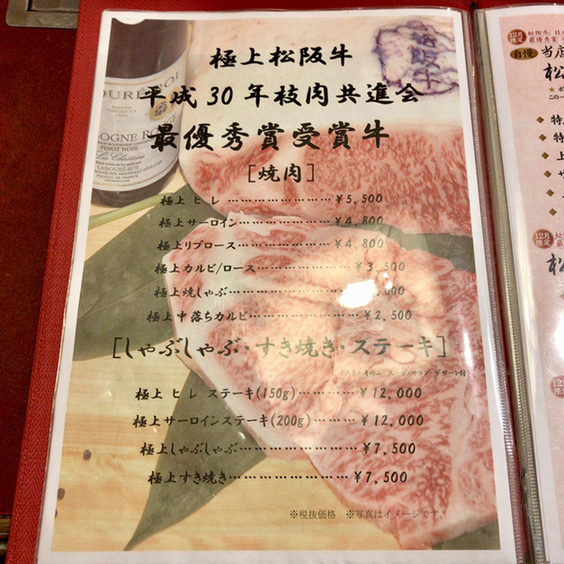 極上松阪牛
平成30年枝肉共進会
最優秀賞受賞牛
[焼肉]
極上 ヒレ ……………………¥5,500
極上サーロイン………………¥4,800
極上リブロース………………¥4,800
極上カルビ/ロース……………¥3,500
極上焼しゃぶ…………………
極上中落ちカルビ……………¥2,500
[しゃぶしゃぶ・すき焼き・ステーキ]
極上 ヒレ ステーキ(150g)…………¥12,000
極上サーロインステーキ(200g)………¥12,000
極上しゃぶしゃぶ…………………¥7,500
極上すき焼き……………………¥7,500
※税抜価格 ※写真はイメージです。
松阪牛
PINOT NOIR
12月
限定
自慢
当店
12月
限定